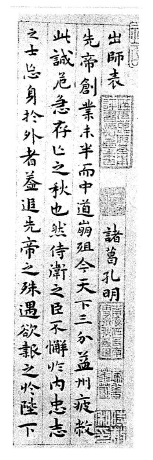 出師表 諸葛孔明
先帝創業未半而中道崩殂今天下三分益州疲敝
此誠危急存亡之秋也然侍衛之臣不懈於內忠志
之士忘身於外者蓋追先帝之殊遇欲報之於陛下